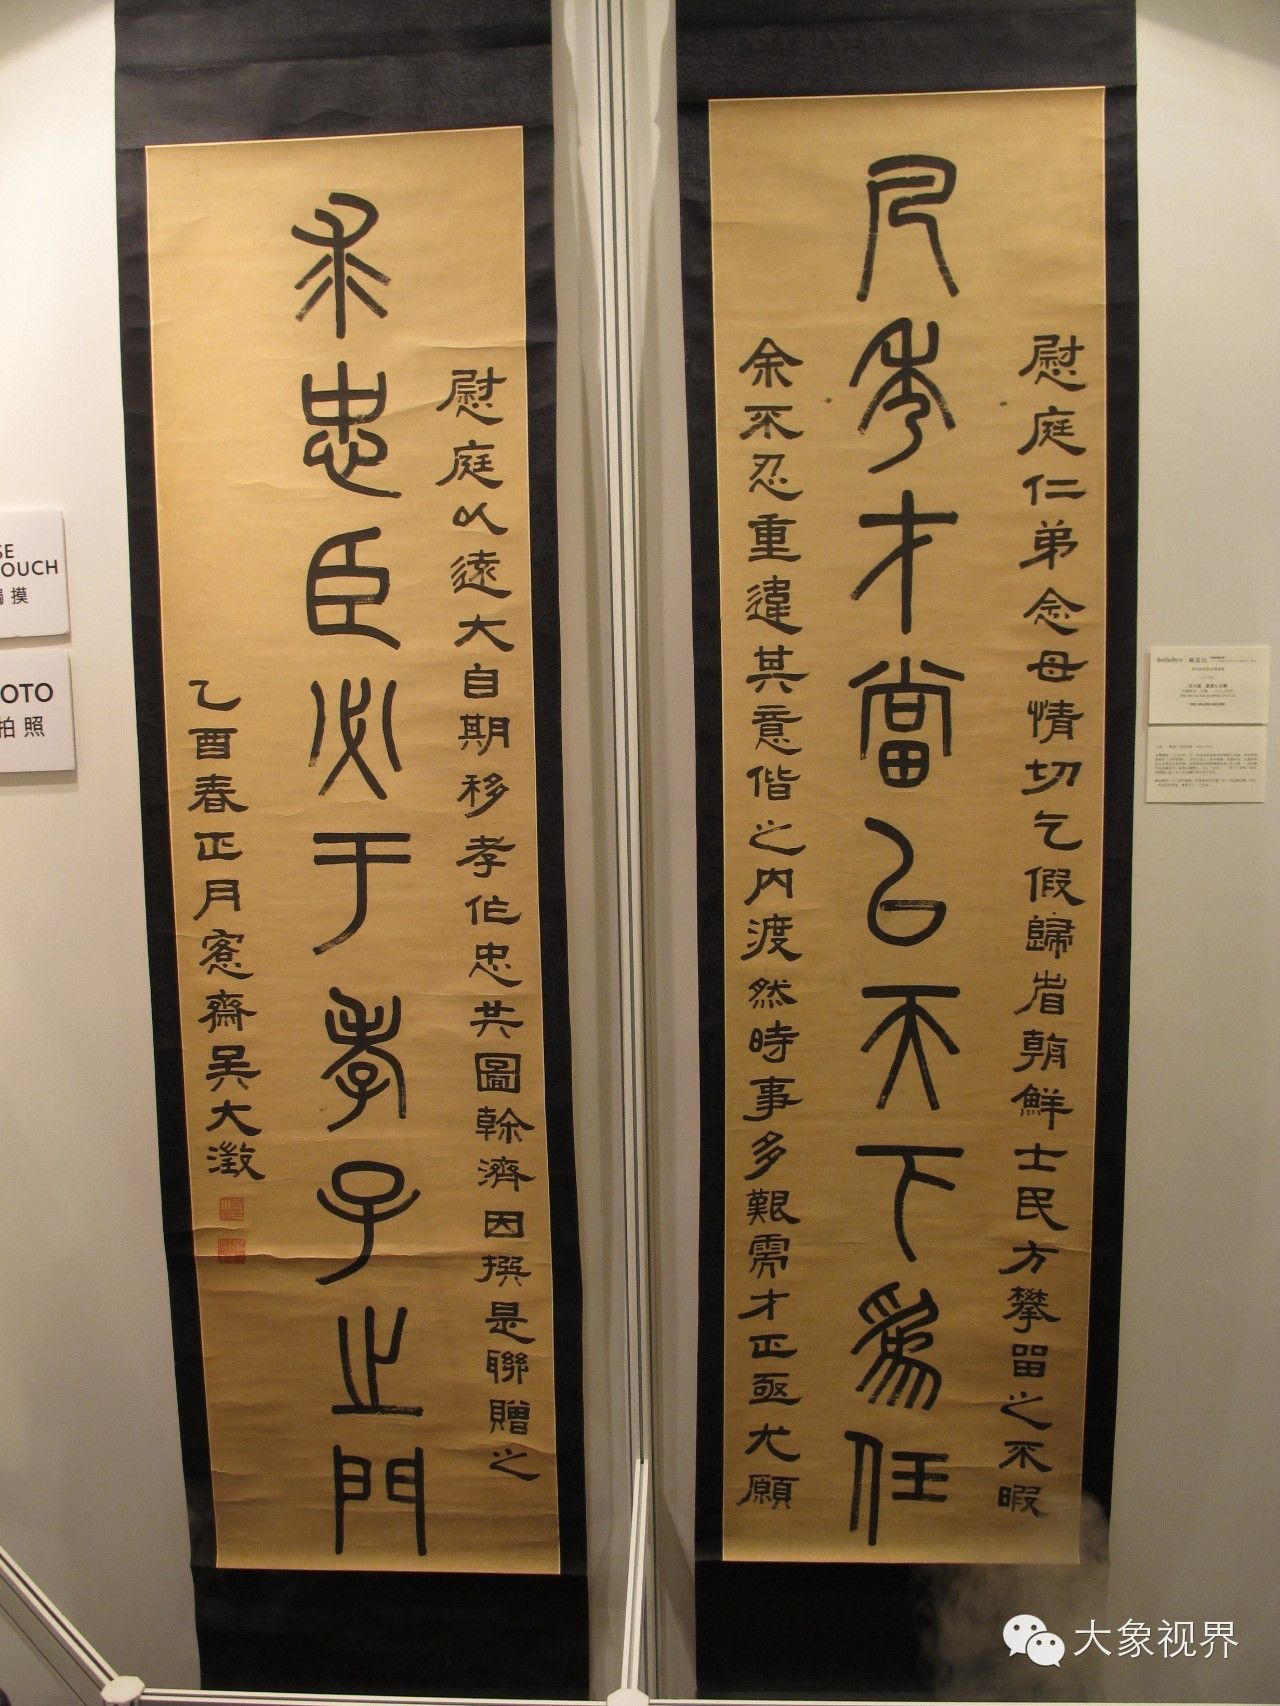 慰庭仁弟念母情切乞假歸省朝鮮士民方攀留之不暇
凡秀才當以天下爲任
余不忍重違其意偕之内渡然時事多艱需才正亟尤願
慰庭以遠大自期移孝作忠共圖榦濟因撰是聯贈之
求忠臣必于孝子之門
乙酉春正月愙齋吳大澂
SE
OUCH
摸
OTO
拍照
Sotheby's 蘇富比
大象视界